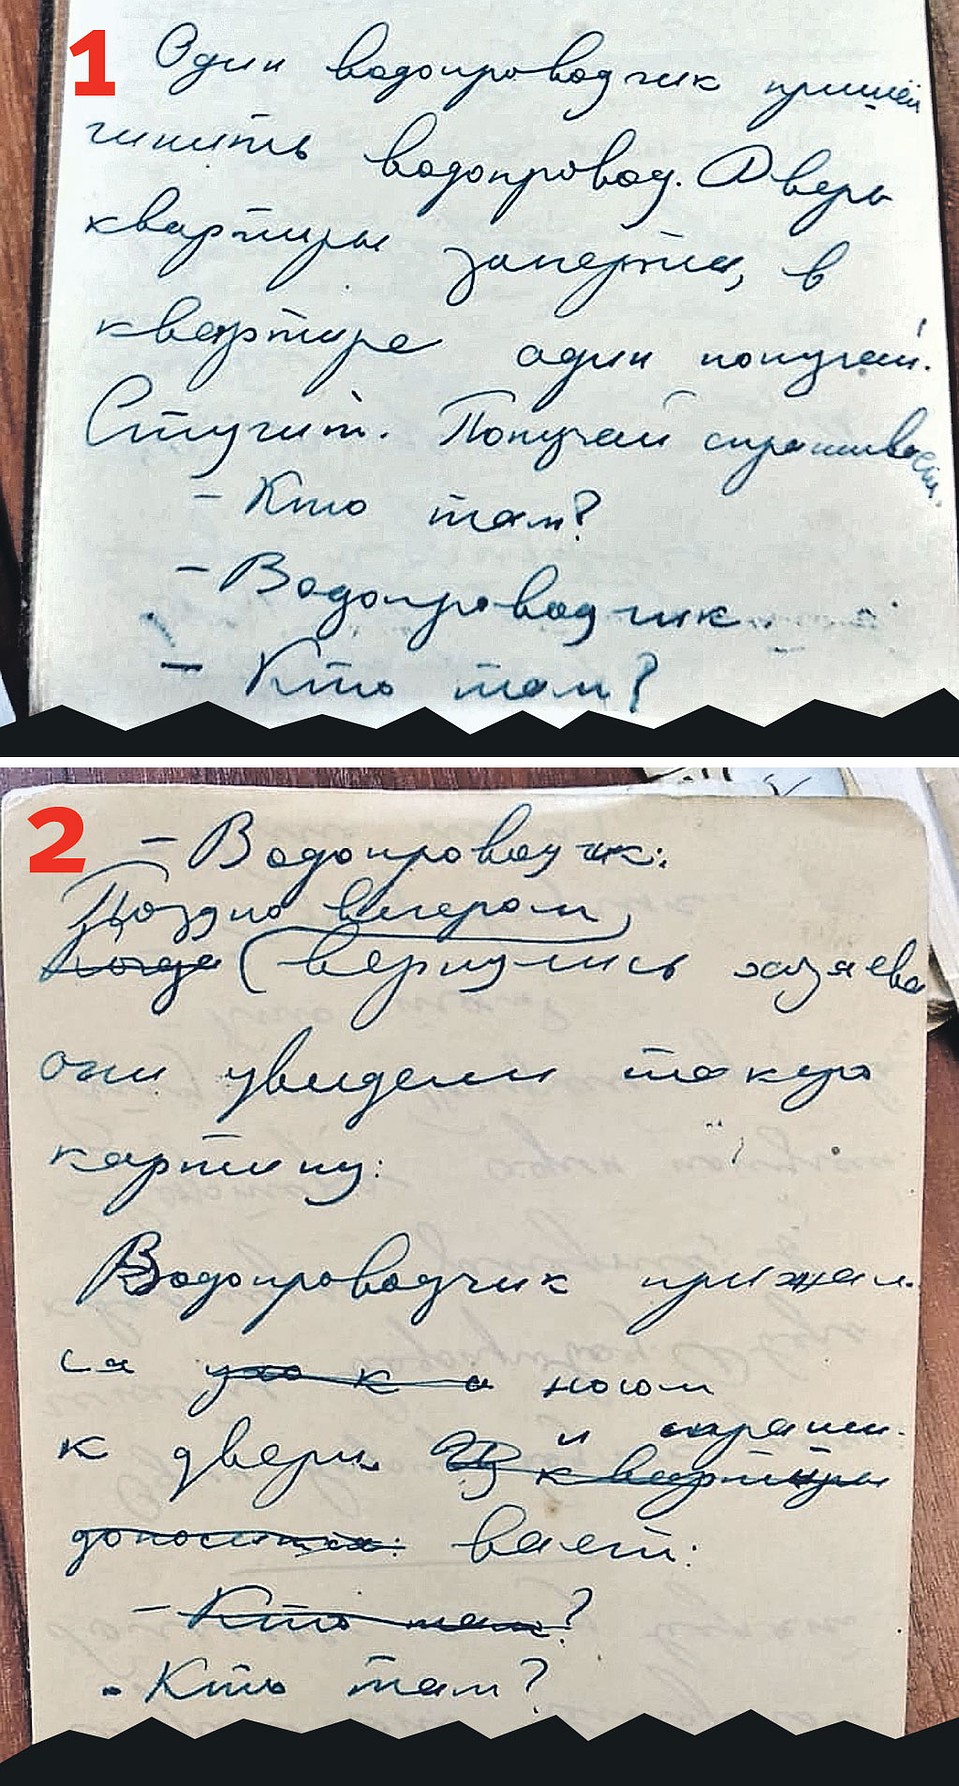 1
Один водопроводчик пришёл
чинить водопровод. Дверь
квартиры заперта, в
квартире один попугай.
Стучит. Попугай спрашивает.
- Кто там?
- Водопроводчик.
- Кто там?
2
- Водопроводчик:
Поздно вечером,
когда (вернулись хозяева
они увидели такую
картину:
Водопроводчик прижал-
ся ухо к а носом
к двери и спраши-
из квартиры
доносится: вает:
- Кто там?
- Кто там?